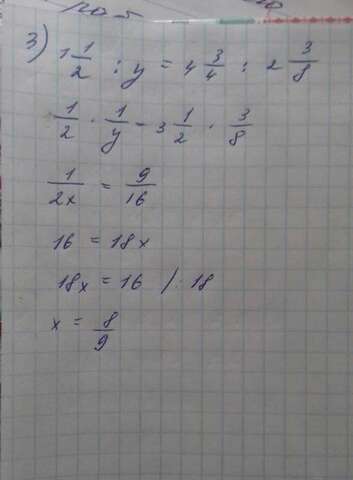 3) 1 1/2 : y = 4 3/4 : 2 3/8
1/2 · 1/y = 3 1/2 · 3/8
1/2x = 9/16
16 = 18x
18x = 16 /: 18
x = 8/9